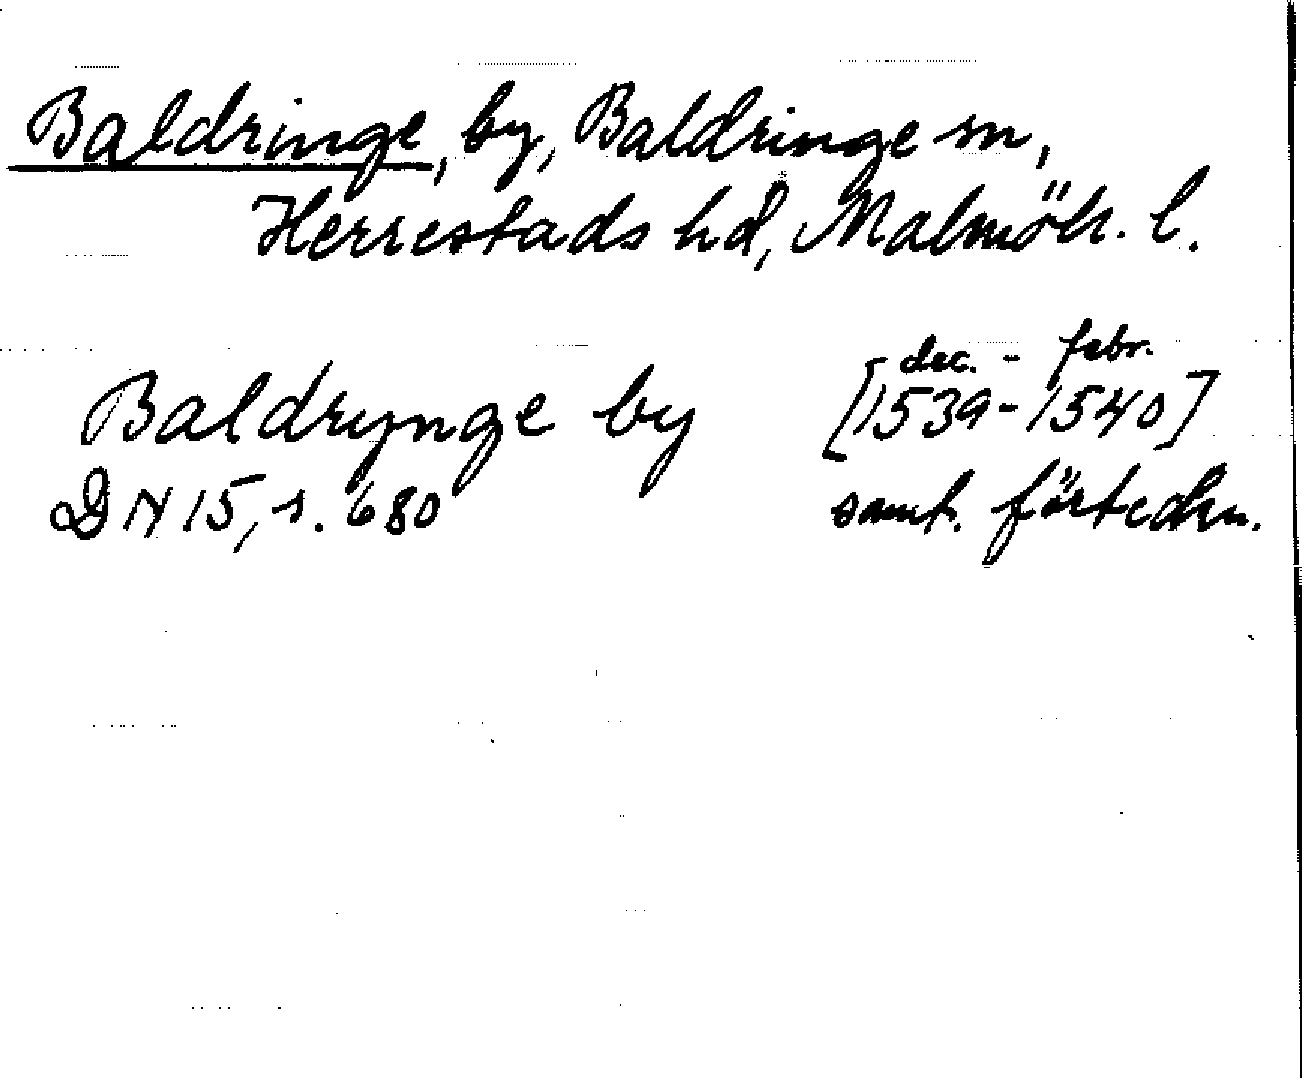 Baldringe, by, Baldringe sn,
Herrestads hd, Malmöh. l.
dec. - febr.
Baldrynge by [1539-1540]
DN 15, s. 680 samt. förteckn.